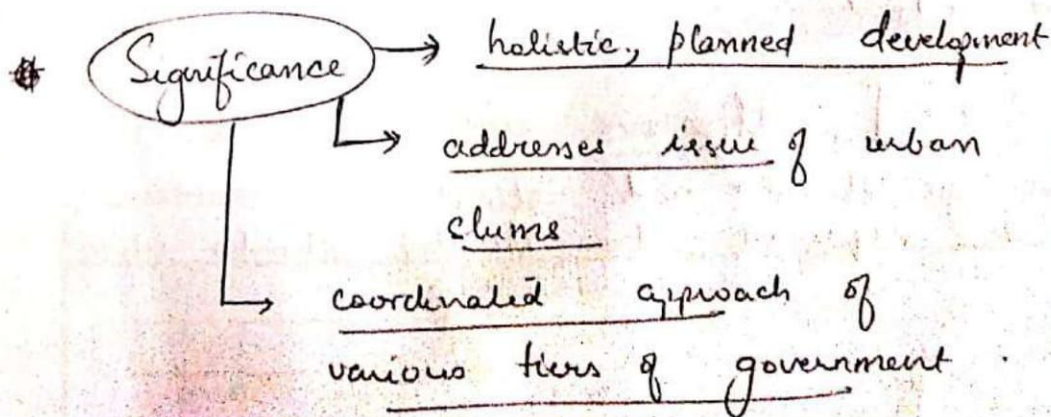 Significance
holistic, planned development
addresses issue of urban
slums
coordinated approach of
various tiers of government.